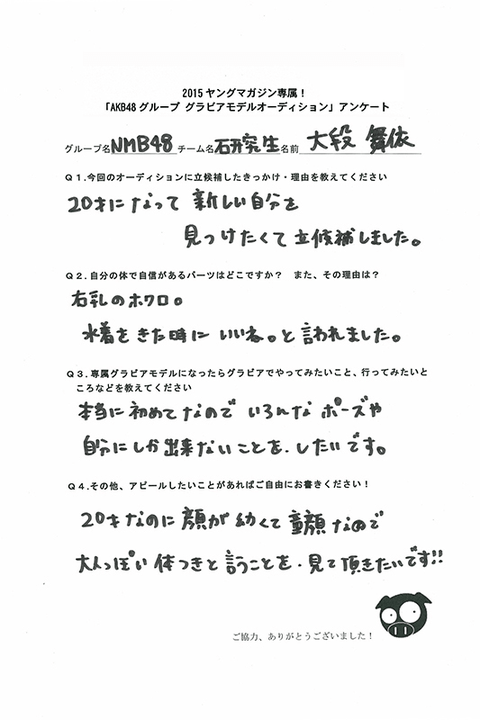 2015ヤングマガジン専属！
「AKB48グループ グラビアモデルオーディション」アンケート
グループ名 NMB48 チーム名 石研究生 名前 大段 舞依
Q１.今回のオーディションに立候補したきっかけ・理由を教えてください
20才になって 新しい自分を
見つけたくて立候補しました。
Q２.自分の体で自信があるパーツはどこですか？ また、その理由は？
右乳のホクロ。
水着をきた時に いいね。と言われました。
Q３.専属グラビアモデルになったらグラビアでやってみたいこと、行ってみたいと
ころなどを教えてください
本当に初めてなので いろんな ポーズや
自分にしか出来ないことを.したいです。
Q４.その他、アピールしたいことがあればご自由にお書きください！
20才なのに顔が幼くて童顔なので
大人っぽい体つきと言うことを.見て頂きたいです!!
ご協力、ありがとうございました！